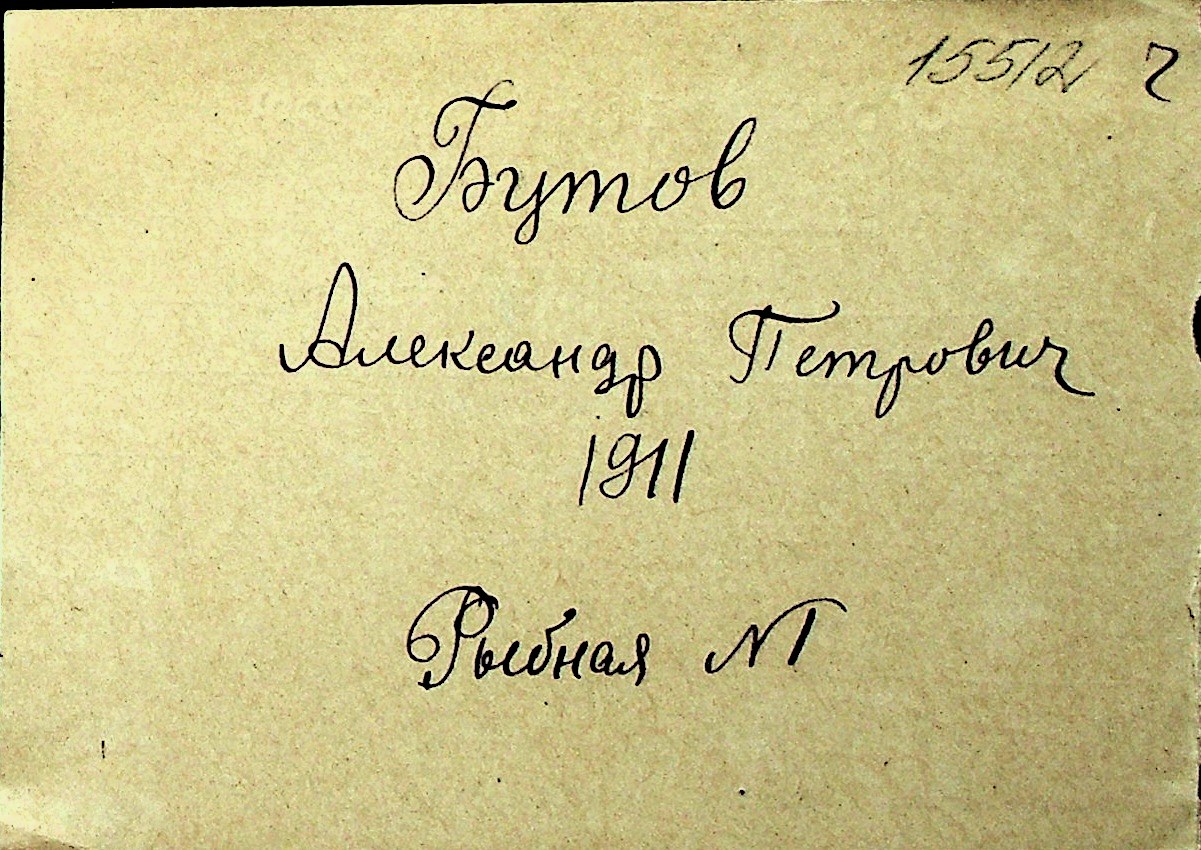 15512 2
Бутов
Александр Петрович
1911
Рыбная №1